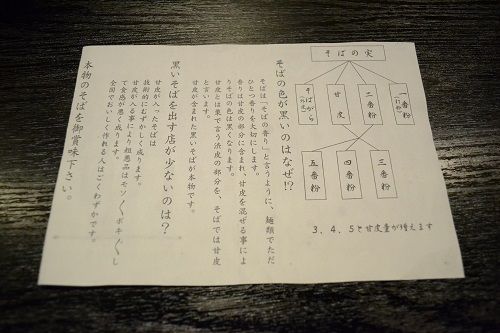 そばの実
一番粉
二番粉
甘皮
そばがら
三番粉
四番粉
五番粉
3、4、5と甘皮量が増えます
そばの色が黒いのはなぜ!?
そばは「そばの香り」と言うように、麺類でただ
ひとつ香りを大切にします。
香りは甘皮の部分に含まれ、甘皮を混ぜる事によ
りそばの色は黒くなります。
甘皮とは栗で言う渋皮の部分を、そばでは甘皮
と言います。
甘皮が含まれた黒いそばが本物です。
黒いそばを出す店が少ないのは?
甘皮が入ったそばは
技術的にむずかしく成ります。
甘皮が入る事により粗悪品はモソ〱ボキ〲し
て食感が悪く成ります。
全国でおいしく作れる人はごくわずかです。
本物のそばを御賞味下さい。